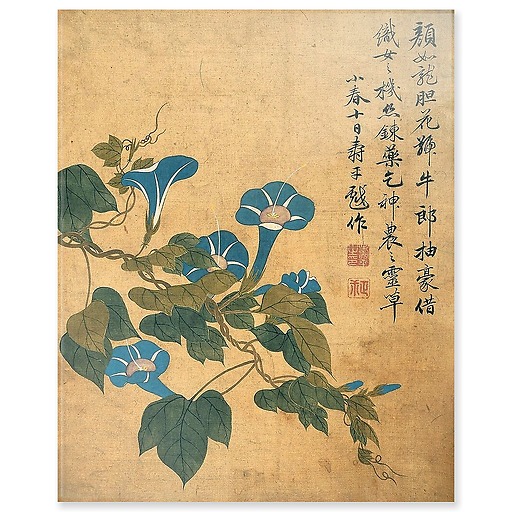 顔如龍胆花號牛郎抽豪借
織女〻機絲鍊藥乞神農〻靈草
小春十日壽平戲作